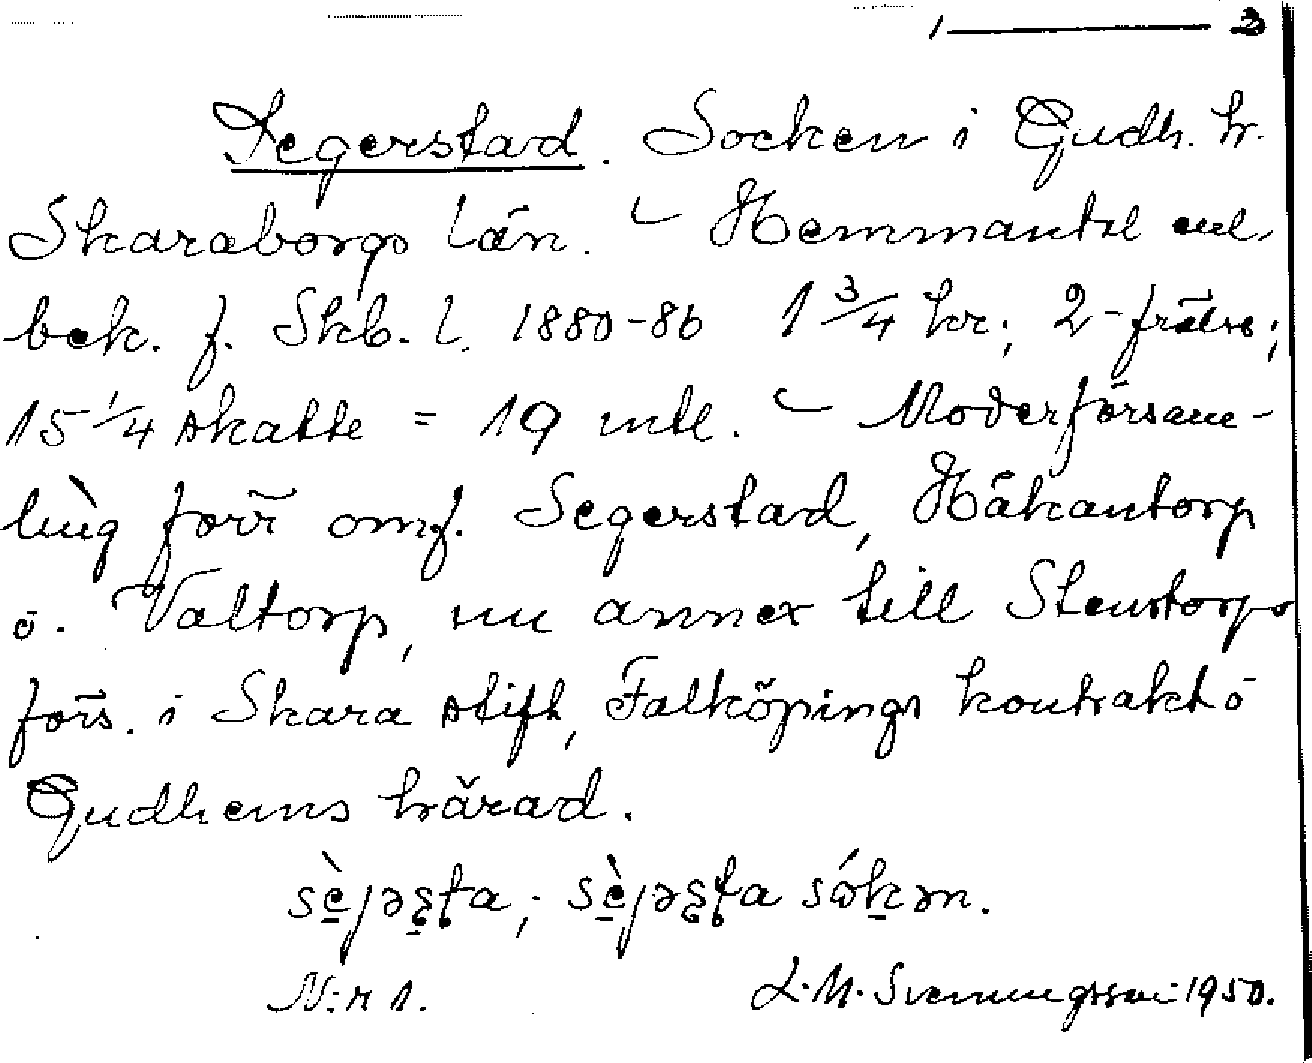 1 — 3
Segerstad. Socken i Gudh. hr.
Skaraborgs län. — Hemmantal enl.
bek. f. Skb. l. 1880-86 1 3/4 kr; 2 - frälse;
15 1/4 skatte = 19 mtl. — Moderförsam-
ling förr omf. Segerstad, Håkantorp
o. Valtorp, nu annex till Stenstorps
förs. i Skara stift, Falköpings kontrakt o
Gudhems härad.
sèjəsta; sèjəsta sókən.
N:r 1. L. M. Svenungsson 1950.